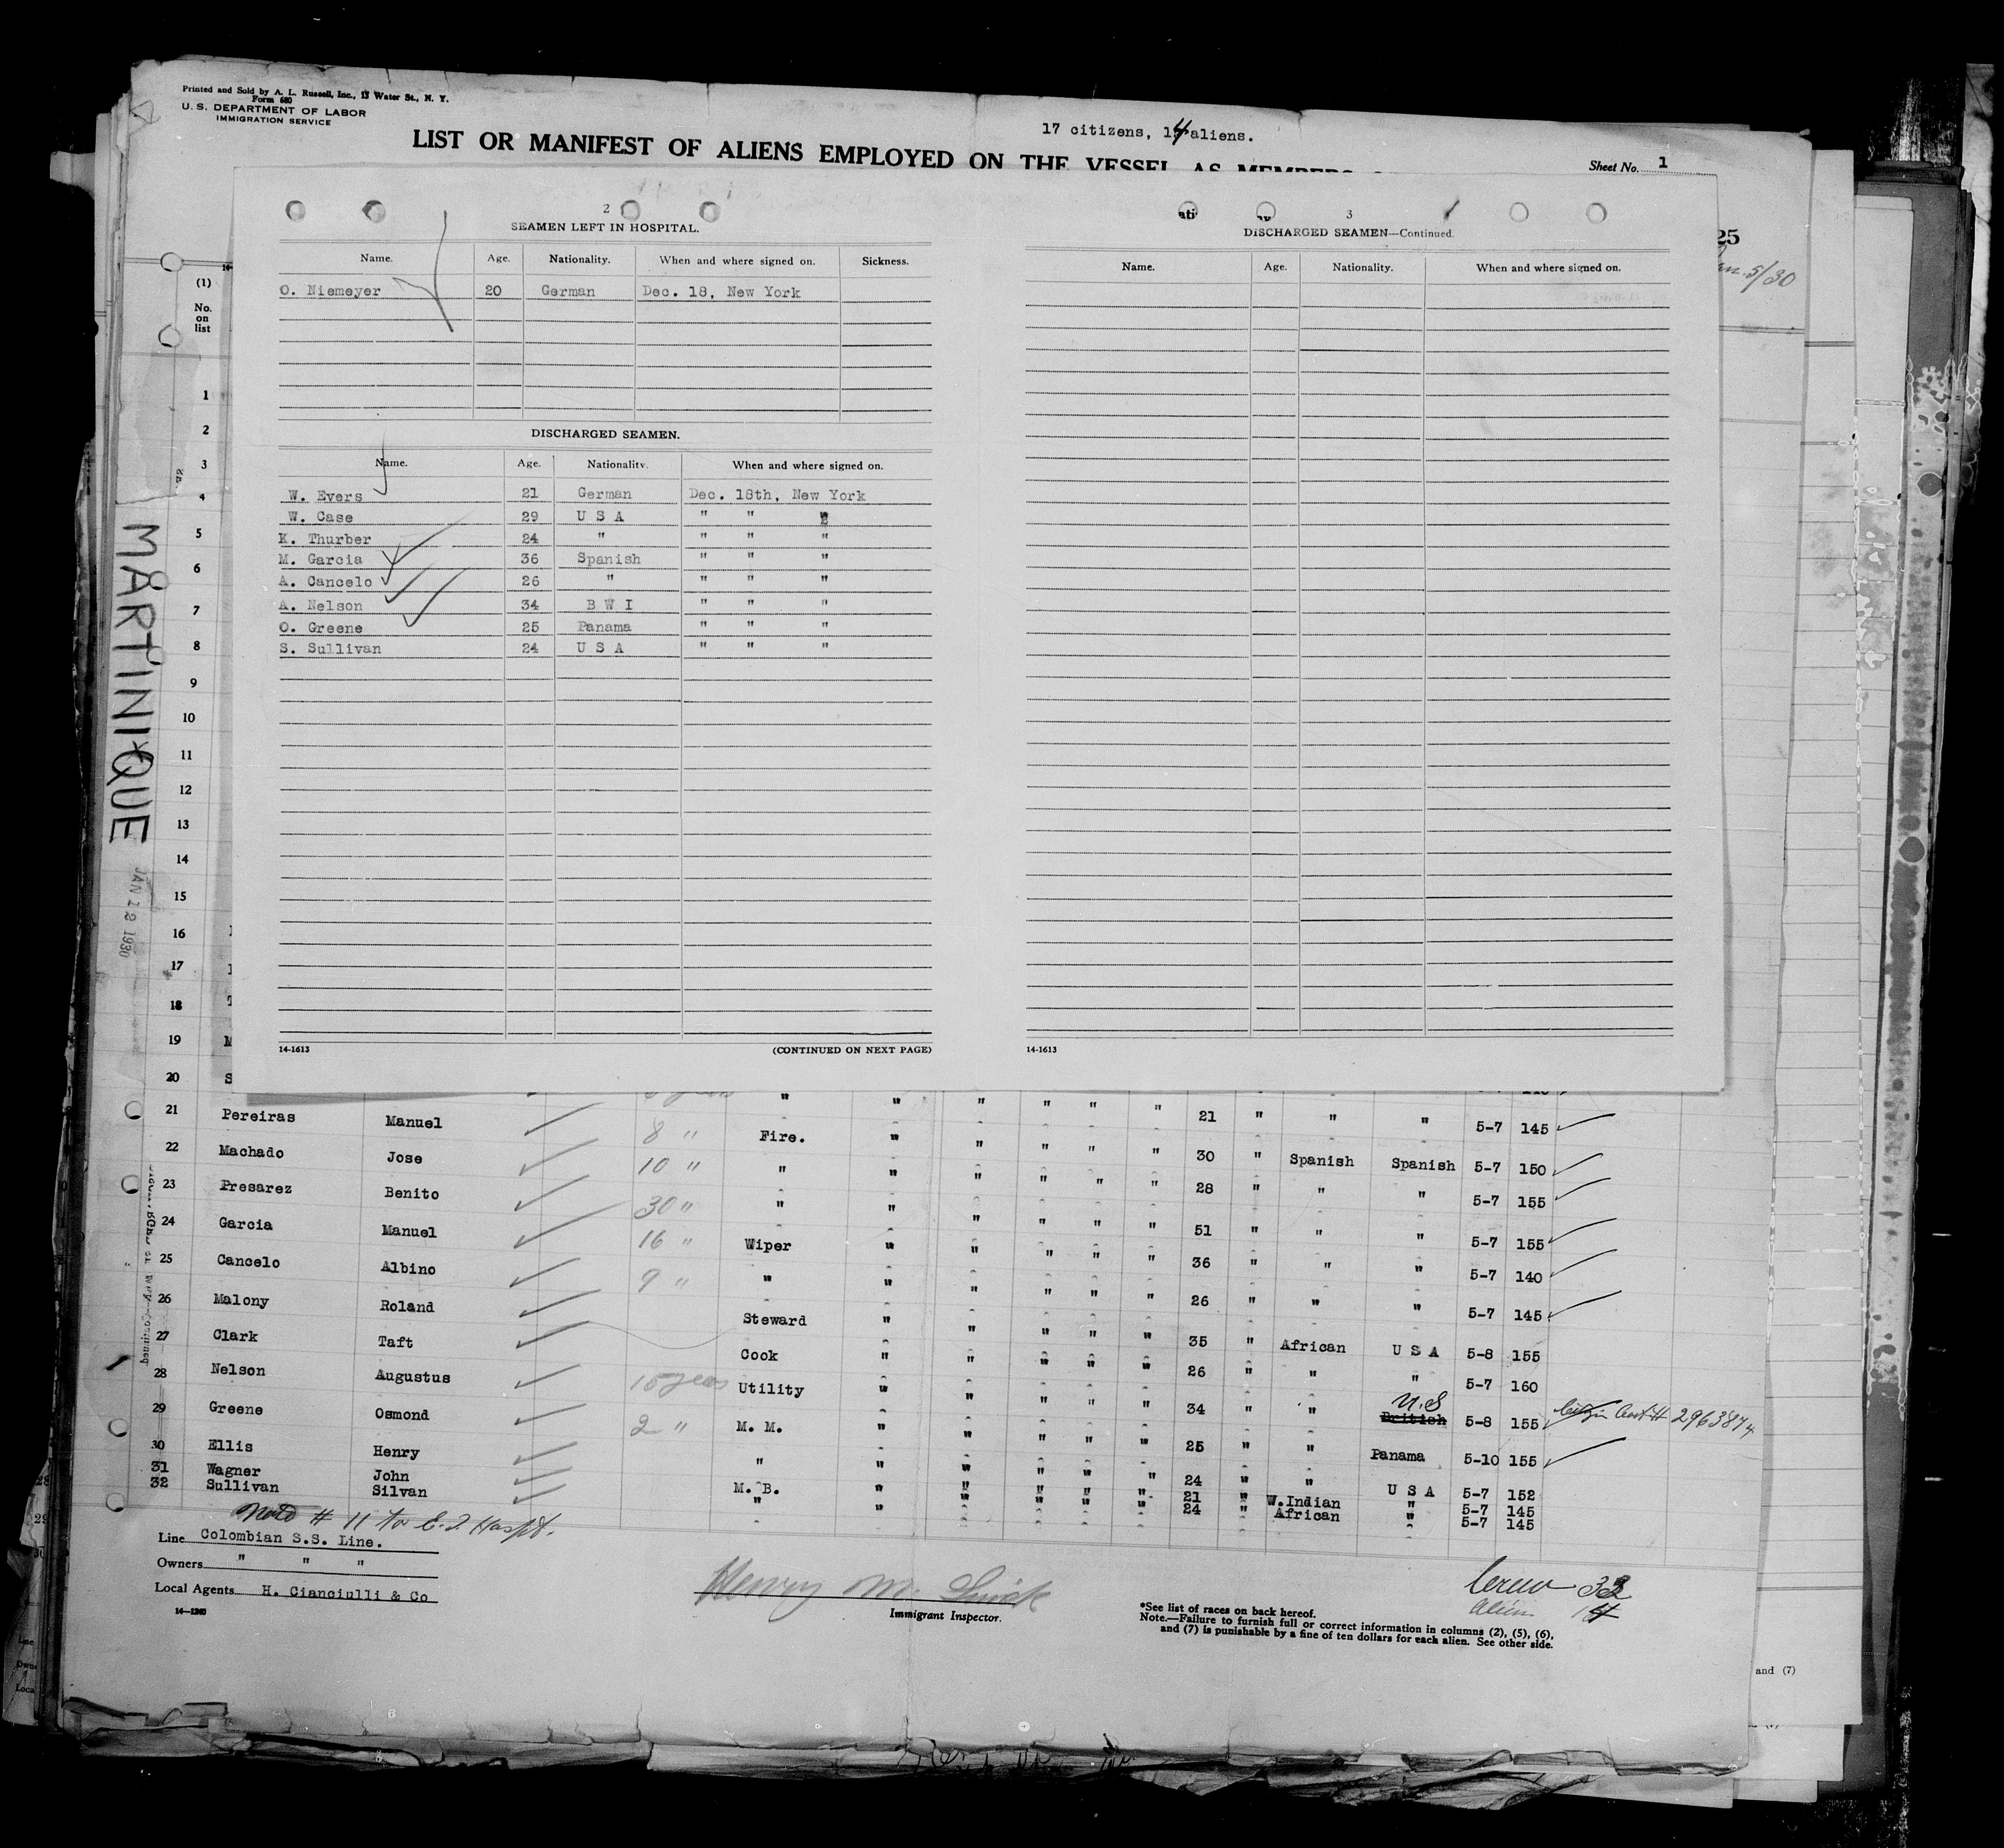 Printed and Sold by A. L. Russell, Inc., 13 Water St., N. Y.
Form 680
U. S. DEPARTMENT OF LABOR
IMMIGRATION SERVICE
17 citizens, 14 aliens.
LIST OR MANIFEST OF ALIENS EMPLOYED ON THE VESSEL AS MEMBERS
Sheet No. 1
25
5/30
MARTINIQUE
JAN 12 1930
(1)
No.
on
list
1
2
3
4
5
6
7
8
9
10
11
12
13
14
15
16
17
18
19
20
2
SEAMEN LEFT IN HOSPITAL.
Name. Age. Nationality. When and where signed on. Sickness.
O. Niemeyer 20 German Dec. 18, New York
DISCHARGED SEAMEN.
Name. Age. Nationality. When and where signed on.
W. Evers 21 German Dec. 18th, New York
W. Case 29 U S A " " "
K. Thurber 24 " " " "
M. Garcia 36 Spanish " " "
A. Cancelo 26 " " " "
A. Nelson 34 B W I " " "
O. Greene 25 Panama " " "
S. Sullivan 24 U S A " " "
14-1613 (CONTINUED ON NEXT PAGE)
3
DISCHARGED SEAMEN—Continued.
Name. Age. Nationality. When and where signed on.
14-1613
21 Pereiras Manuel 8 " Fire. " " " " " 21 " " " 5-7 145
22 Machado Jose 10 " " " " " " " 30 " Spanish Spanish 5-7 150
23 Presarez Benito 30 " " " " " " " 28 " " " 5-7 155
24 Garcia Manuel 16 " Wiper " " " " " 51 " " " 5-7 155
25 Cancelo Albino 9 " " " " " " " 36 " " " 5-7 140
26 Malony Roland Steward " " " " " 26 " " " 5-7 145
27 Clark Taft Cook " " " " " 35 " African U S A 5-8 155
28 Nelson Augustus 15 years Utility " " " " " 26 " " " 5-7 160
29 Greene Osmond 2 " M. M. " " " " " 34 " " U.S British 5-8 155 Cert # 2963874
30 Ellis Henry " " " " " " 25 " " Panama 5-10 155
31 Wagner John M. B. " " " " " 24 " " U S A 5-7 152
32 Sullivan Silvan " " " " " " 21 " W.Indian " 5-7 145
24 " African " 5-7 145
Note # 11 to E. I. Hospt.
Line Colombian S.S. Line.
Owners " " "
Local Agents H. Cianciulli & Co
14—1240
Immigrant Inspector.
Crew 32
Alien 14
*See list of races on back hereof.
Note.—Failure to furnish full or correct information in columns (2), (5), (6),
and (7) is punishable by a fine of ten dollars for each alien. See other side.
and (7)